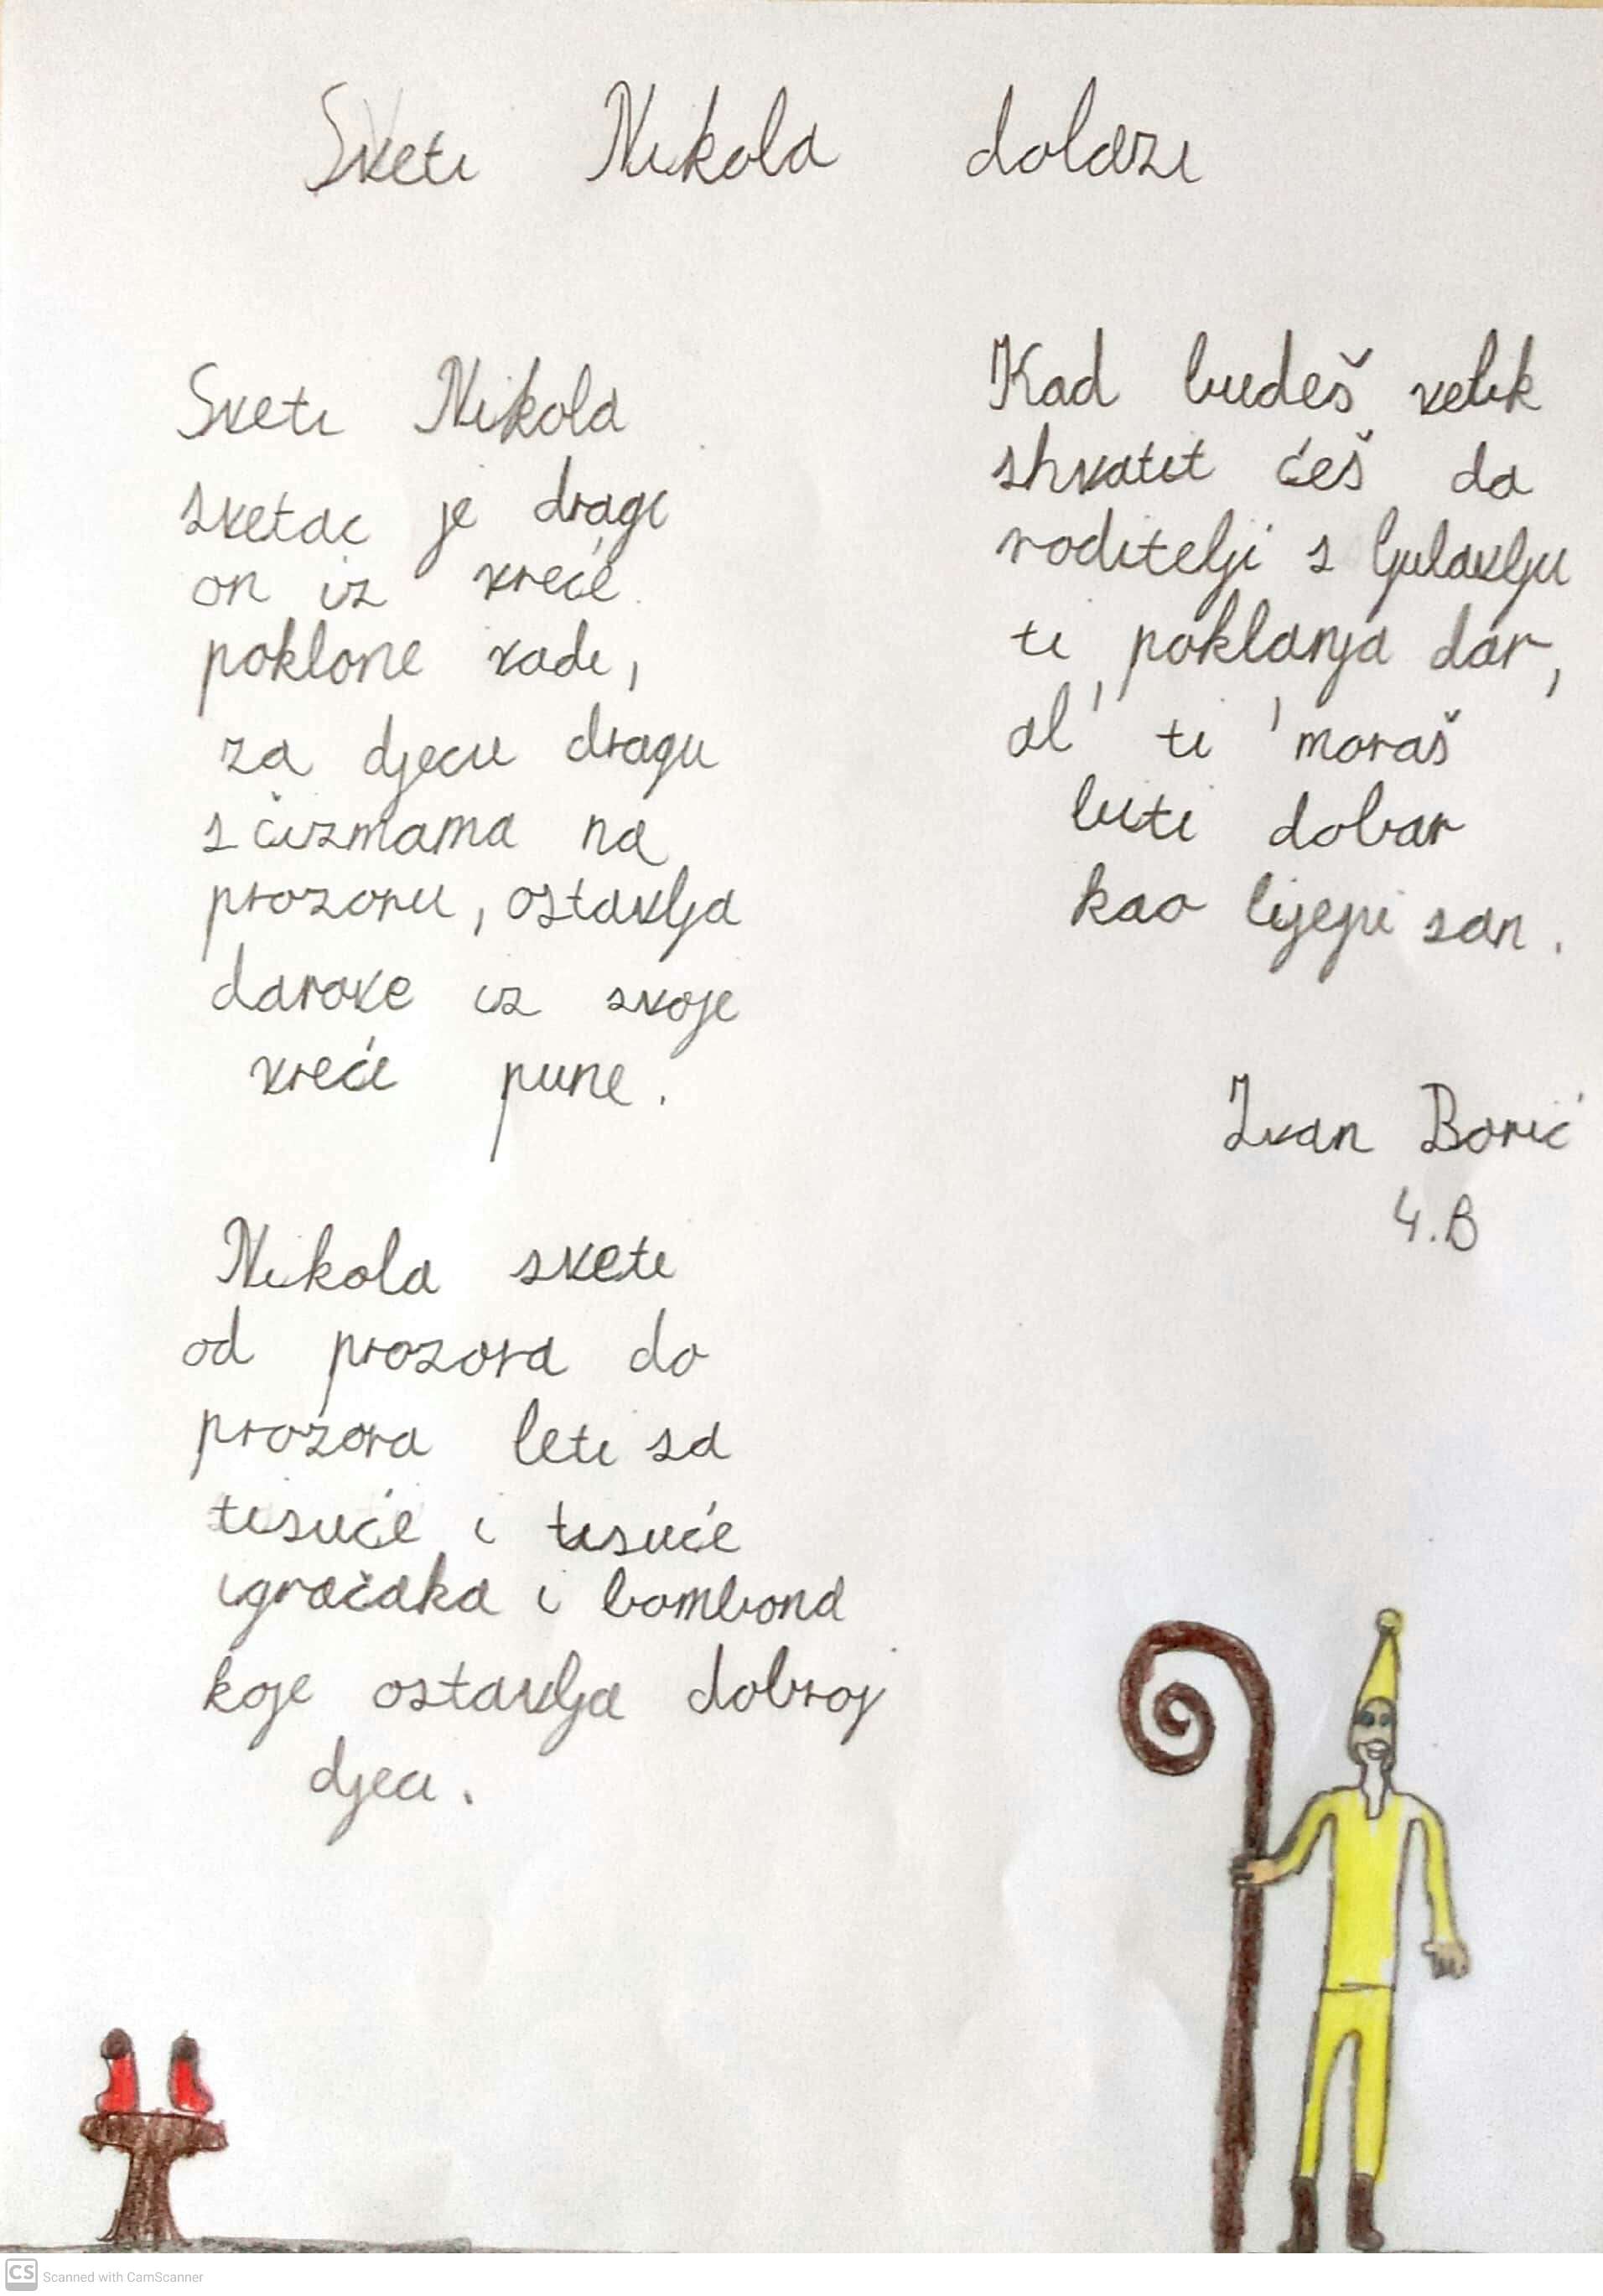 Sveti Nikola dolazi
Sveti Nikola
svetac je dragi
on iz vreće
poklone vadi,
za djecu dragu
s čizmama na
prozoru, ostavlja
darove iz svoje
vreće pune.
Nikola sveti
od prozora do
prozora leti sa
tisuće i tisuće
igračaka i bombona
koje ostavlja dobroj
djeci.
Kad budeš velik
shvatit ćeš da
roditelji s ljubavlju
ti poklanja dar,
al' ti moraš
biti dobar
kao lijepi san.
Ivan Borić
4.B
CS Scanned with CamScanner